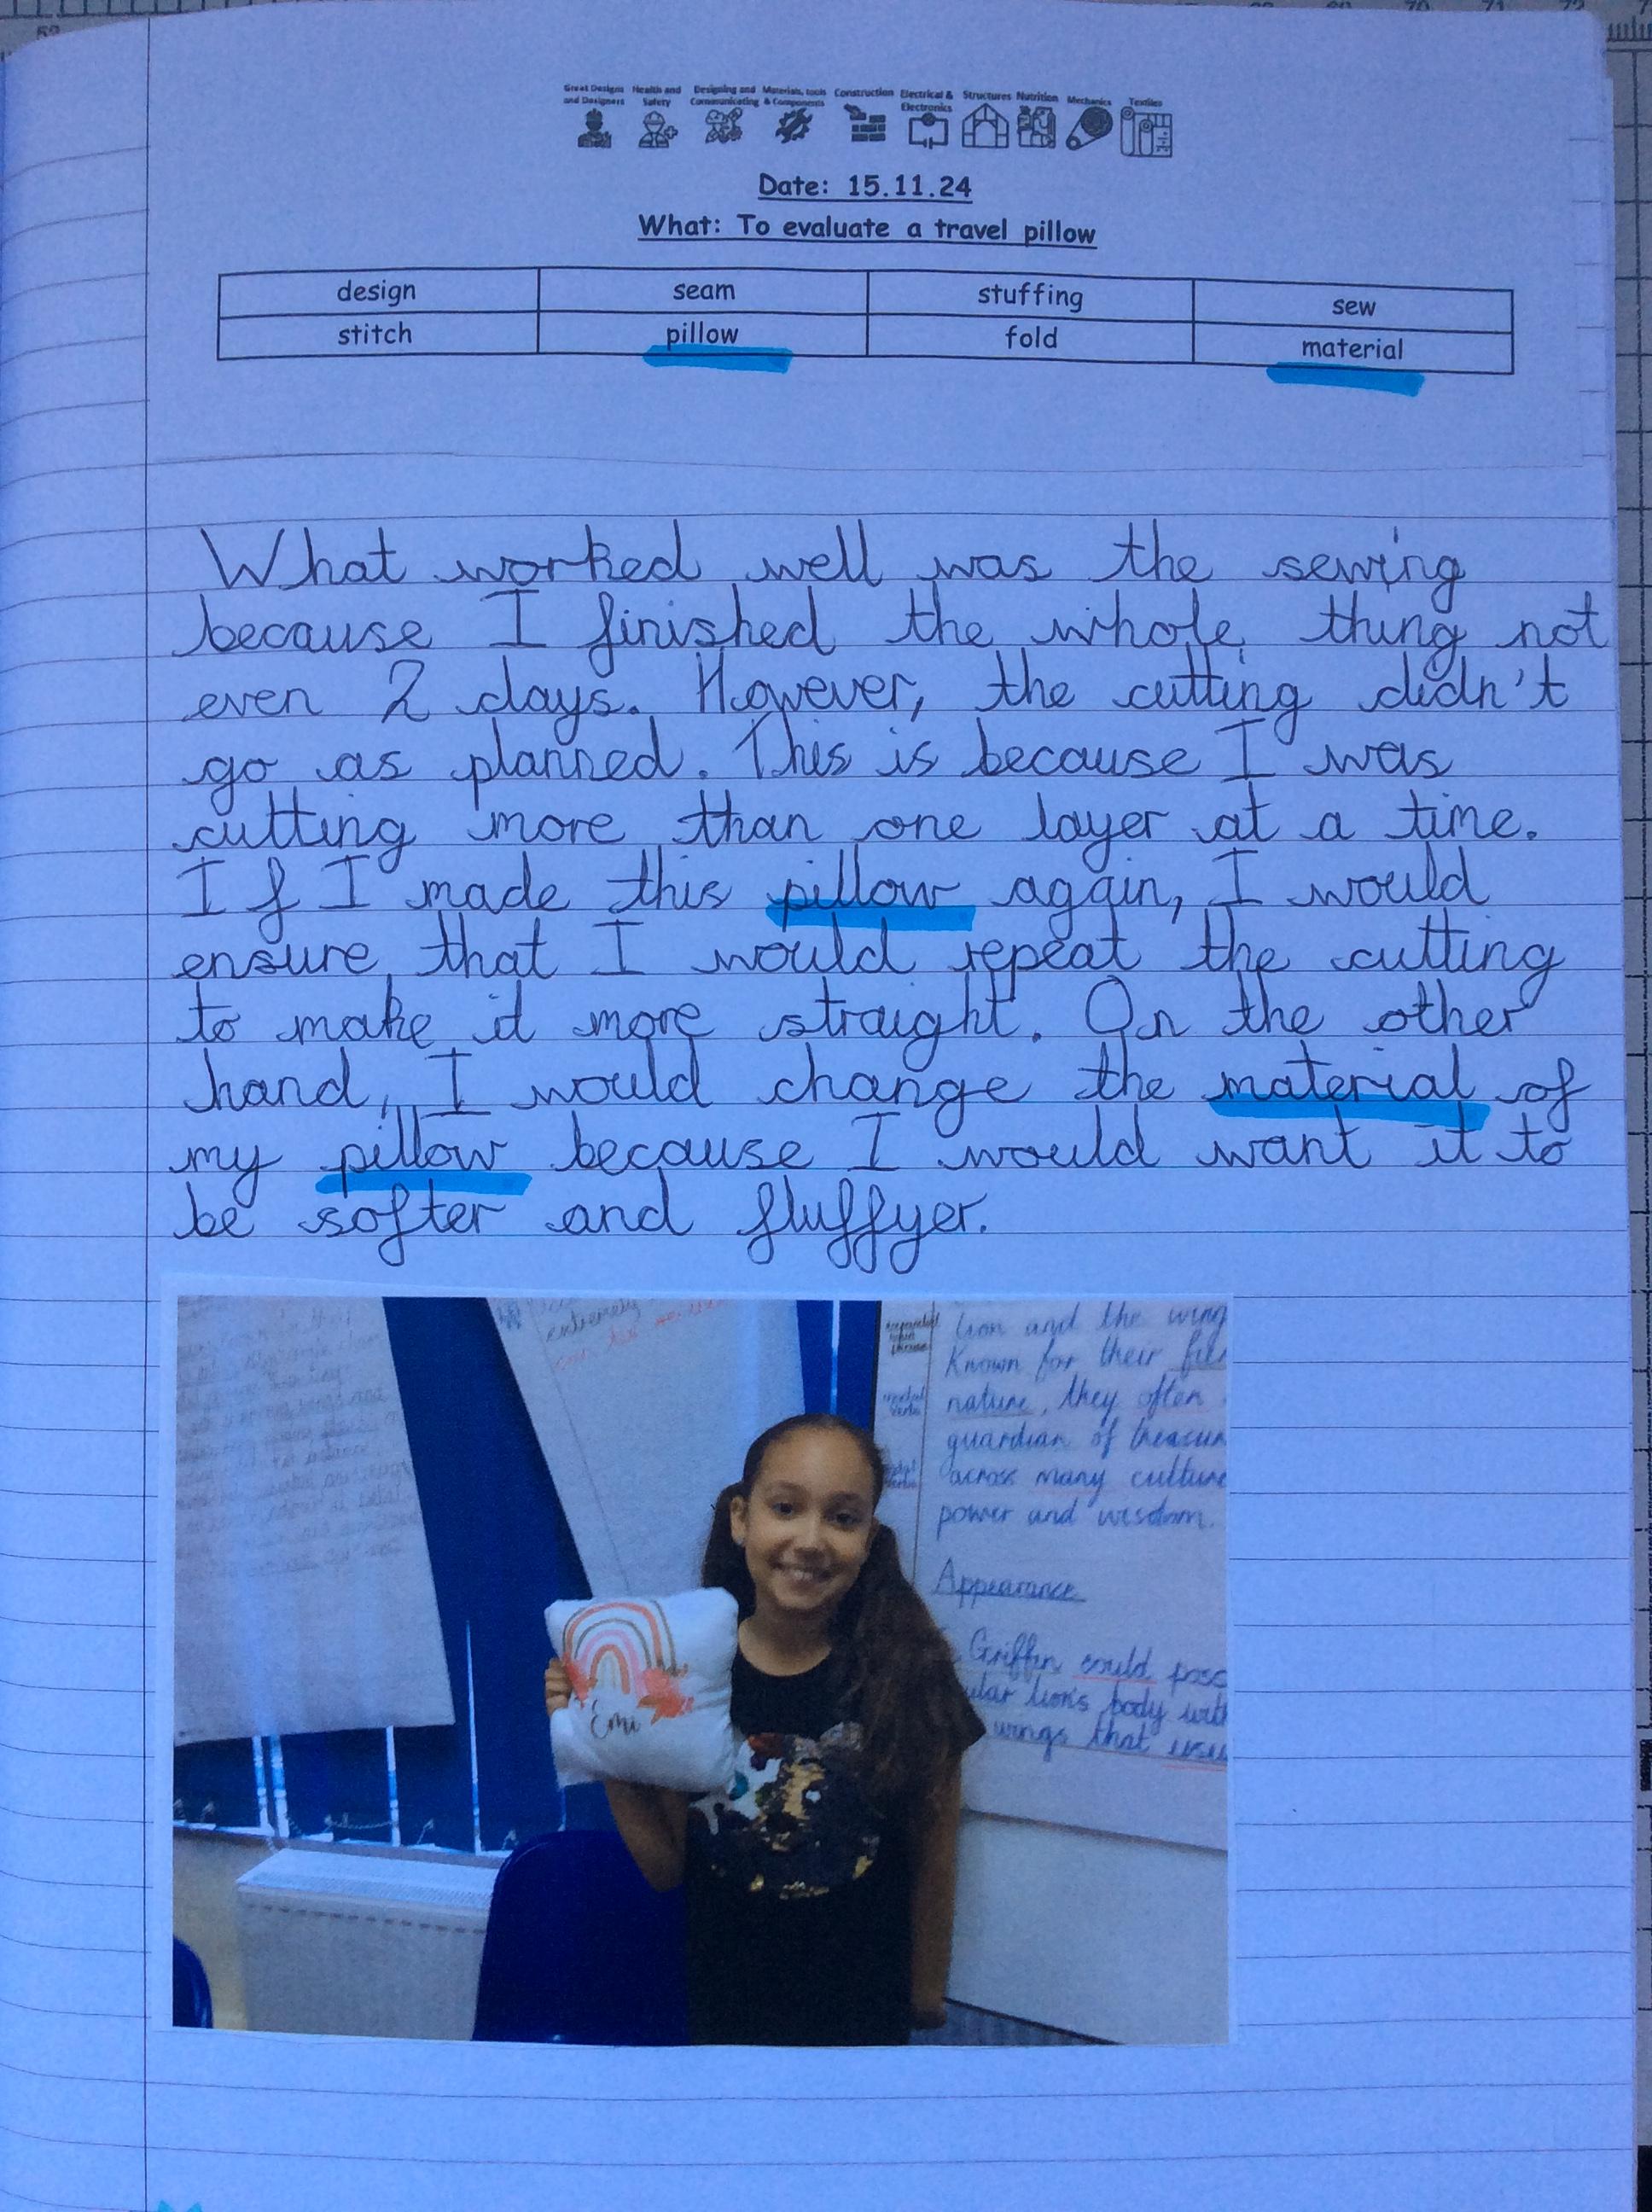 Great Designs and Designers
Health and Safety
Designing and Communicating
Materials, tools & Components
Construction
Electrical & Electronics
Structures
Nutrition
Mechanics
Textiles
Date: 15.11.24
What: To evaluate a travel pillow
design seam stuffing sew
stitch pillow fold material
What worked well was the sewing
because I finished the whole thing not
even 2 days. However, the cutting didn't
go as planned. This is because I was
cutting more than one layer at a time.
If I made this pillow again, I would
ensure that I would repeat the cutting
to make it more straight. On the other
hand, I would change the material of
my pillow because I would want it to
be softer and fluffyer.
Emi
lion and the wing
Known for their
nature, they often
guardian of
across many culture
power and wisdom.
Appearance
Griffin could poss
lion's body with
wings that usu
70 71 72